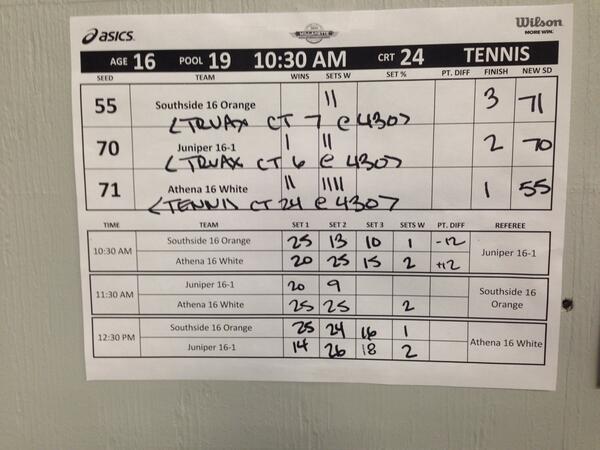 asics
Wilson
MORE WIN.
AGE 16 POOL 19 10:30 AM CRT 24 TENNIS
SEED TEAM WINS SETS W SET % PT. DIFF FINISH NEW SD
55 Southside 16 Orange || 3 71
<TRUAX CT 7 @ 430>
70 Juniper 16-1 | || 2 70
<TRUAX CT 6 @ 430>
71 Athena 16 White || |||| 1 55
<TENNIS CT 24 @ 430>
TIME TEAM SET 1 SET 2 SET 3 SETS W PT. DIFF REFEREE
10:30 AM Southside 16 Orange 25 13 10 1 -12 Juniper 16-1
Athena 16 White 20 25 15 2 +12
11:30 AM Juniper 16-1 20 9 Southside 16 Orange
Athena 16 White 25 25 2
12:30 PM Southside 16 Orange 25 24 16 1 Athena 16 White
Juniper 16-1 14 26 18 2